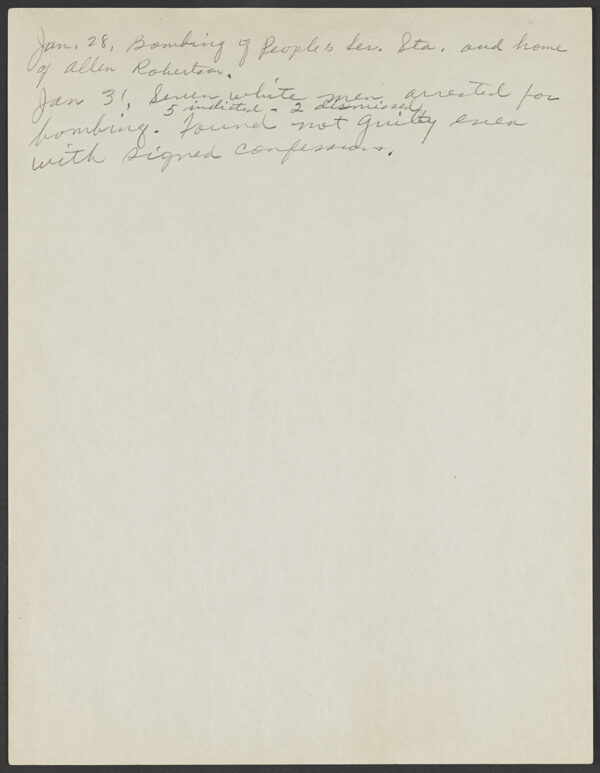 Jan. 28, Bombing of People's Ser. Sta. and home
of Allen Robertson.
Jan 31, Seven white men arrested for
5 indicted - 2 dismissed
bombing. Found not guilty even
with signed confessions.